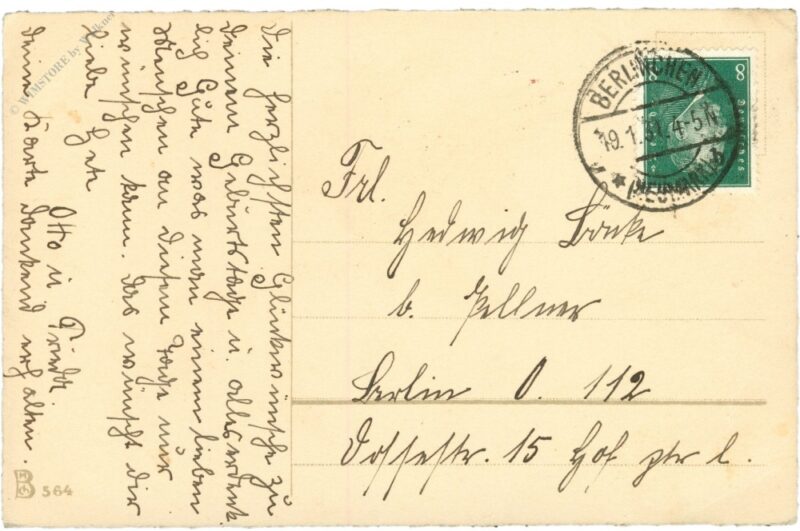 Die herzlichsten Glückwünsche zu
deinem Geburtstage u. alles erdenk
lich Gute was man einem lieben
Menschen an diesem Tage nur
wünschen kann. Das wünscht dir
liebe Hete
Otto u. Frieda.
Deine Karte dankend erhalten.
Frl.
Hedwig Böncke
b. Pellner
Berlin O. 112
Dossestr. 15 Hof ptr l.
BERLINCHEN
19.1.31.4-5N
(NEUMARK)
8 8
564
© WIMSTORE by Walkner